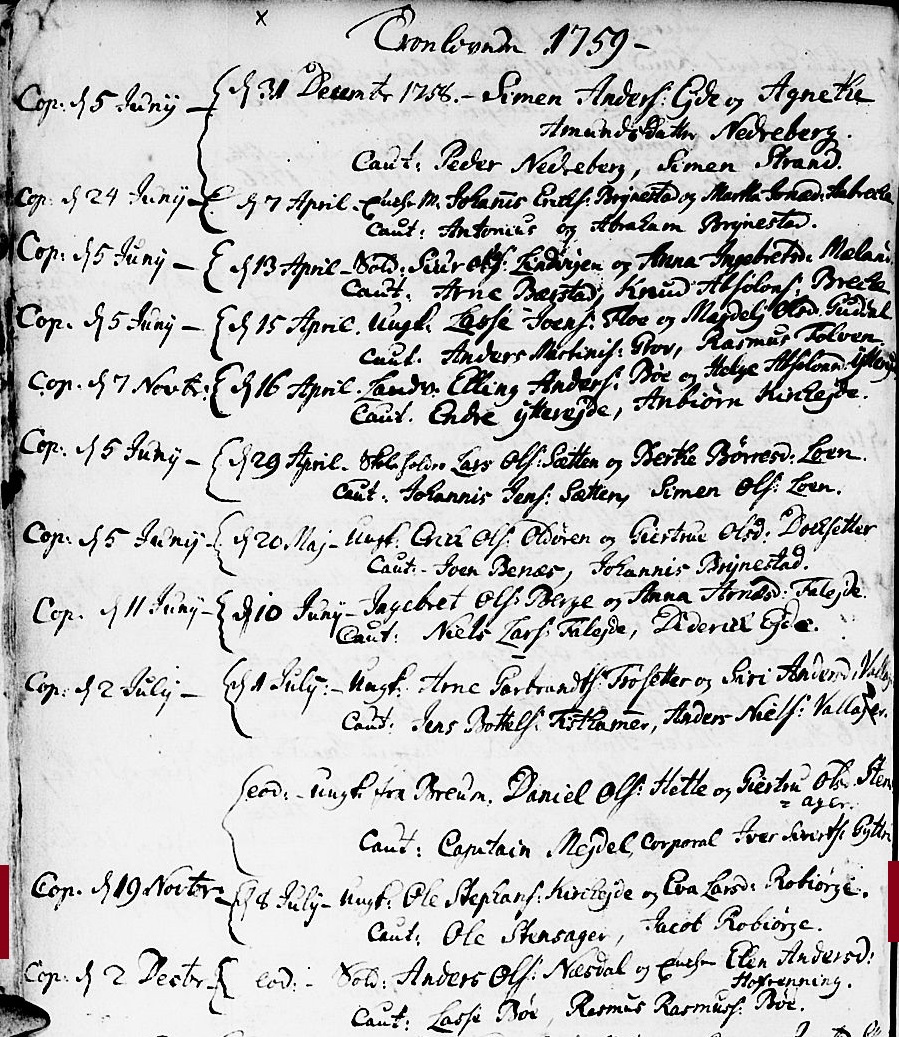 x
1759 -
Cop: d 5 Junÿ - d 31 Decembr 1758. - Simen Anders: Eÿde og Agnethe
Amundsdatter Nedreberg.
Caut: Peder Nedreberg, Simen Strand.
Cop: d 24 Junÿ - d 7 April - M. Johannis Erichs: Brÿnestad og Martha
Caut: Antonius og Abraham Brÿnestad.
Cop: d 5 Junÿ - d 13 April - Sold: Siur Ols: og Anna Ingebretsd: Mæland
Caut: Arne Bærstad, Knud Absolons: Brecke
Cop. d 5 Junÿ - d 15 April. Ungk: Lasse Joens: Floe og Magdeli Olsd: Guddal
Caut: Anders Mortinis: Prov, Rasmus Tolven
Cop. d 7 Novbr: d 16 April. Landv. Elling Anders: Bøe og Helge Absolons:
Caut. Endre ÿttereÿde, Anbiørn Kirkeÿde.
Cop: d 5 Junÿ - d 29 April - Skoleholder Lars Ols: Sætten og Berthe Børresd: Loen.
Caut: Johannis Jens: Sætten, Simen Ols: Loen.
Cop: d 5 Junÿ - d 20 Maj - Ungk: Erich Ols: Oldøren og Giertrue Olsd: Døcksetter
Caut: - Joen Benæs, Johannis Brÿnestad.
Cop: d 11 Junÿ - d 10 Junÿ - Ingebret Ols: Berge og Anna Arnesd: Faleÿde.
Caut: Niels Lars: Faleÿde, Diderich Eÿde.
Cop: d 2 Julÿ - d 1 Julÿ: - Ungk: Arne Garbrandts: Frosetter og Siri Andersd:
Caut: Jens Bottels: Fisthamer, Anders Niels: Vallager.
eod: - Ungk: fra Breum. Daniel Ols: Hette og Giertru Ols: Stens
= ager.
Caut: Capitain Mejdel, Corporal Iver Siverts:
Cop. d 19 Novbr - d 8 Julÿ - Ungk: Ole Stephans: Kirkeÿde og Eva Larsd: Robiørge.
Caut: Ole Stensager, Jacob Robiørge.
Cop: d 2 Decbr - eod: - Sold: Anders Ols: Næsdal og Elen Andersd:
Hofrenning.
Caut: Lasse Bøe, Rasmus Rasmuss: Bøe.